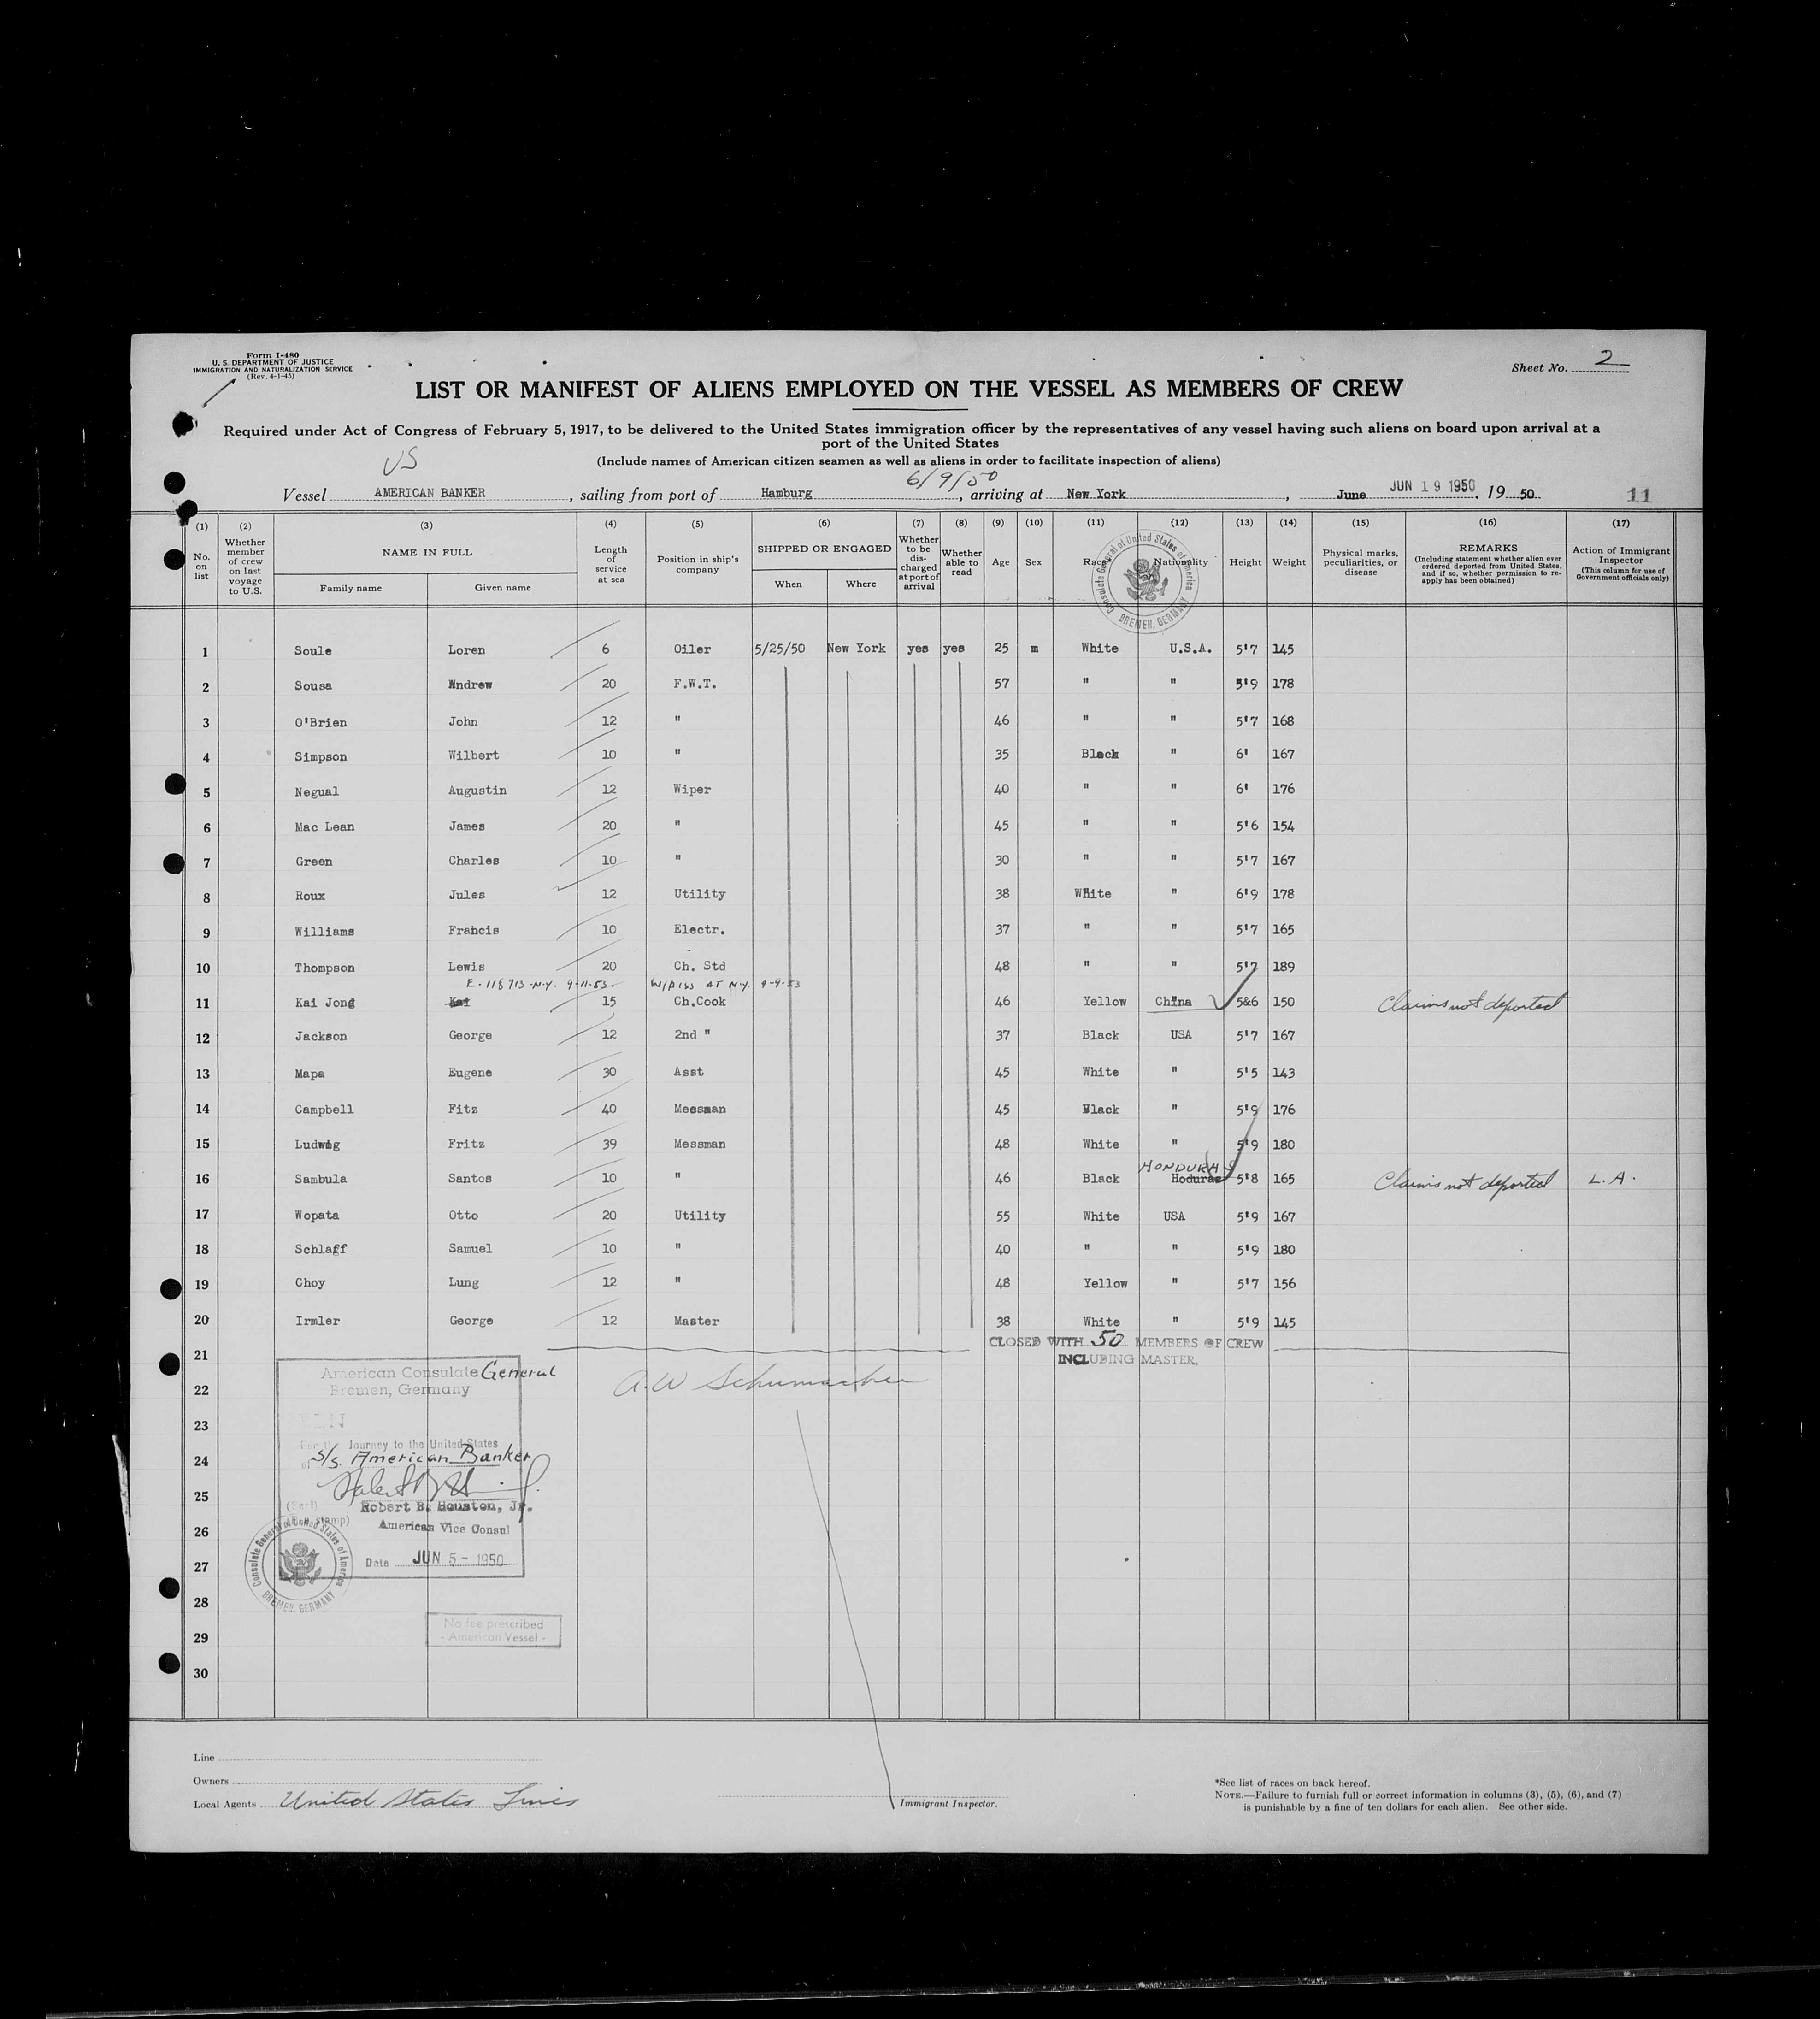 Form I-480
U. S. DEPARTMENT OF JUSTICE
IMMIGRATION AND NATURALIZATION SERVICE
(Rev. 4-1-45)
Sheet No. 2
LIST OR MANIFEST OF ALIENS EMPLOYED ON THE VESSEL AS MEMBERS OF CREW
Required under Act of Congress of February 5, 1917, to be delivered to the United States immigration officer by the representatives of any vessel having such aliens on board upon arrival at a
port of the United States
(Include names of American citizen seamen as well as aliens in order to facilitate inspection of aliens)
US
6/9/50
Vessel AMERICAN BANKER, sailing from port of Hamburg, arriving at New York, June JUN 19 1950, 19 50 11
(1) (2) (3) (4) (5) (6) (7) (8) (9) (10) (11) (12) (13) (14) (15) (16) (17)
No. on list
Whether member of crew on last voyage to U.S.
NAME IN FULL
Family name Given name
Length of service at sea
Position in ship's company
SHIPPED OR ENGAGED
When Where
Whether to be discharged at port of arrival
Whether able to read
Age Sex Race Nationality Height Weight
Physical marks, peculiarities, or disease
REMARKS
(Including statement whether alien ever ordered deported from United States, and if so, whether permission to reapply has been obtained)
Action of Immigrant Inspector
(This column for use of Government officials only)
Consulate General of United States of America
BREMEN, GERMANY
1 Soule Loren 6 Oiler 5/25/50 New York yes yes 25 m White U.S.A. 5'7 145
2 Sousa Andrew 20 F.W.T. 57 " " 5'9 178
3 O'Brien John 12 " 46 " " 5'7 168
4 Simpson Wilbert 10 " 35 Black " 6' 167
5 Negual Augustin 12 Wiper 40 " " 6' 176
6 Mac Lean James 20 " 45 " " 5'6 154
7 Green Charles 10 " 30 " " 5'7 167
8 Roux Jules 12 Utility 38 White " 6'9 178
9 Williams Francis 10 Electr. 37 " " 5'7 165
10 Thompson Lewis 20 Ch. Std 48 " " 5'7 189
E-118713-N.Y. 9-11-53. W/Diss AT N.Y. 9-9-53
11 Kai Jong Kai 15 Ch.Cook 46 Yellow China 5&6 150 Claims not deported
12 Jackson George 12 2nd " 37 Black USA 5'7 167
13 Mapa Eugene 30 Asst 45 White " 5'5 143
14 Campbell Fitz 40 Messman 45 Black " 5'9 176
15 Ludwig Fritz 39 Messman 48 White " 5'9 180
HONDURAS
16 Sambula Santos 10 " 46 Black Hoduras 5'8 165 Claims not deported L.A.
17 Wopata Otto 20 Utility 55 White USA 5'9 167
18 Schlaff Samuel 10 " 40 " " 5'9 180
19 Choy Lung 12 " 48 Yellow " 5'7 156
20 Irmler George 12 Master 38 White " 5'9 145
21
CLOSED WITH 50 MEMBERS OF CREW
INCLUDING MASTER.
American Consulate General
Bremen, Germany
22 A.W Schumacher
23
Journey to the United States
24
S/S. American Banker
25
(Seal) Robert B. Houston, Jr.
26
American Vice Consul
27
Date JUN 5 - 1950
Consulate General of United States of America
BREMEN, GERMANY
28
No fee prescribed
29
- American Vessel -
30
Line
Owners
Local Agents United States Lines
Immigrant Inspector.
*See list of races on back hereof.
NOTE.—Failure to furnish full or correct information in columns (3), (5), (6), and (7)
is punishable by a fine of ten dollars for each alien. See other side.